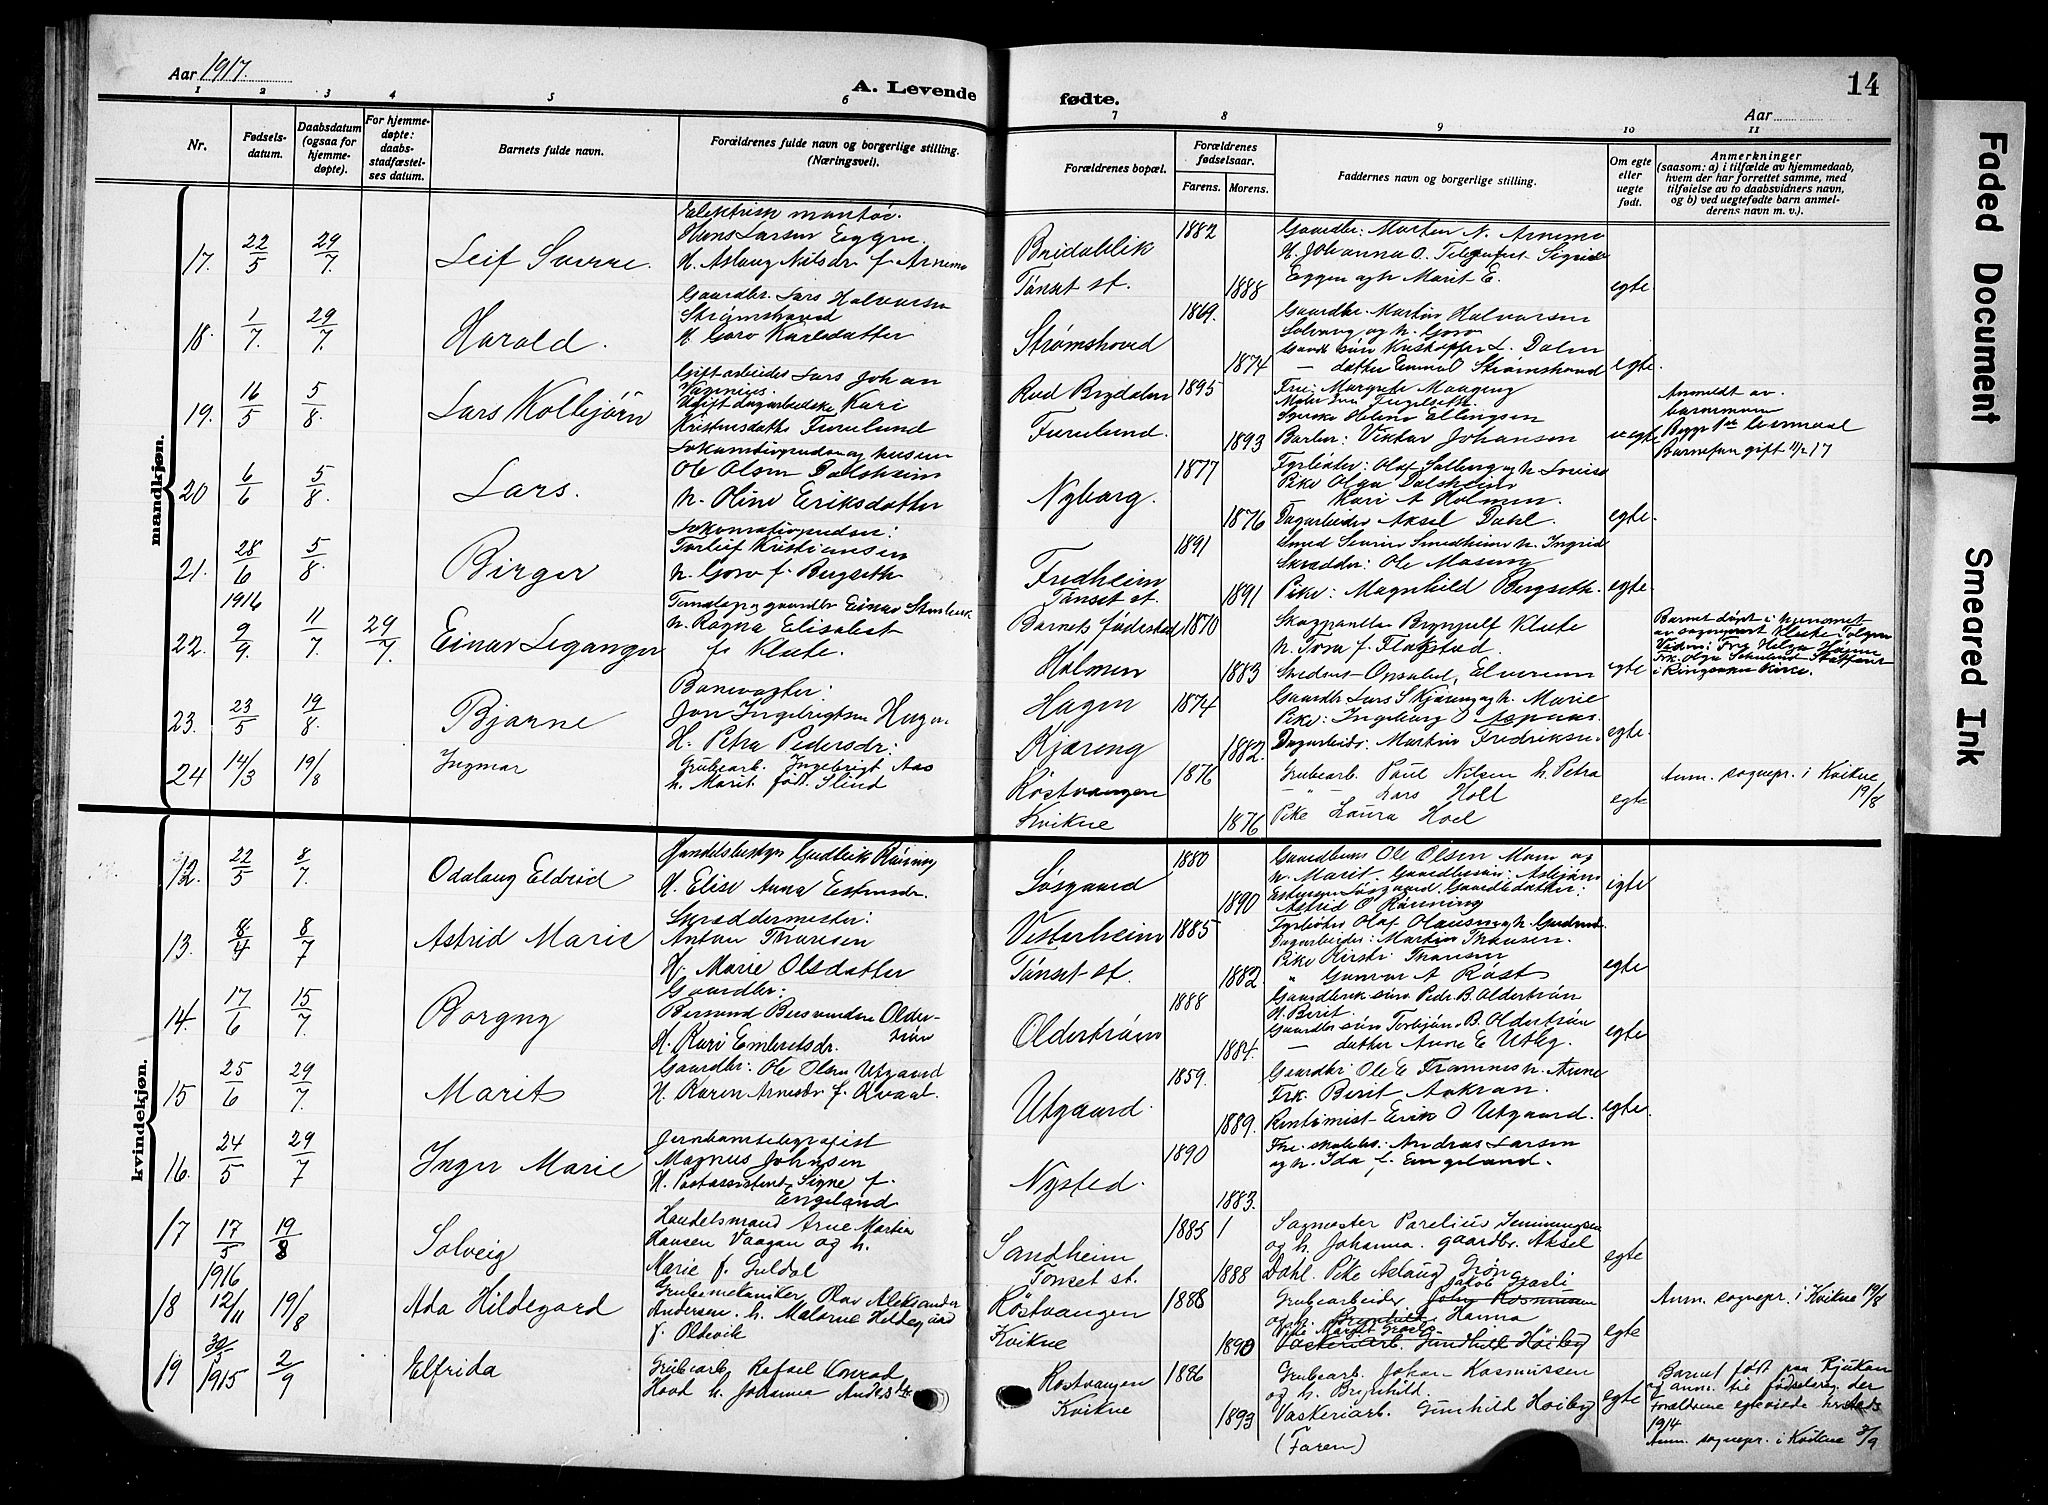 Aar 1917.
A. Levende fødte.
14
Aar
1 2 3 4 5 6 7 8 9 10 11
Nr.
Fødsels-
datum.
Daabsdatum
(ogsaa for
hjemme-
døpte).
For hjemme-
døpte:
daabs-
stadfæstel-
ses datum.
Barnets fulde navn.
Forældrenes fulde navn og borgerlige stilling.
(Næringsvei).
Forældrenes bopæl.
Forældrenes
fødselsaar.
Farens. Morens.
Faddernes navn og borgerlige stilling.
Om egte
eller
uegte
født.
Anmerkninger
(saasom: a) i tilfælde av hjemmedaab,
hvem der har forrettet samme, med
tilføielse av to daabsvidners navn,
og b) ved uegtefødte barn anmel-
derens navn m. v.).
mandkjøn.
17. 22/5 29/7. Leif Sverre.
Elektrisk montør.
Hans Larsen Eggen.
H. Aslaug Nilsdr f. Arnemo
Breidablik
Tønset st.
1882
1888
Gaardbr: Morten N. Arnemo
H. Johanna O. Telegrafist Sigrid
Eggen og h Marit E.
egte.
18. 1/7. 29/7. Harold.
Gaardbr. Lars Halvorsen
Strømshoved
H. Goro Karlsdatter
Strømshoved
1869.
1874
Gaardbr. Martin Halvorsen
Solvang og h. Goro
L. Dalen
datter Emma O Strømshoved
egte.
19. 16/5 5/8. Lars Kolbjørn
Gift arbeider Lars Johan
Ugift dagarbeiderske Kari
Kristensdatter Furulund
Rud Brydalen
Furulund.
1895
1893
Fru: Margrete Moageng
Helene Ellingsen
Barber: Viktor Johansen
uegte
Anmeldt av
barnemoren
Begges 1ste leiermaal
Barnefar gift 11/2 17
20 6/6 5/8. Lars.
Ole Olsen Dalsheim
h. Oline Eriksdatter
Nyborg.
1877
1876
Fyrbøter: Olaf Solberg og h Lovise
Pike Olga Dalsheim
— Kari A Holmen.
Dagarbeider Aksel Dahl.
egte.
21. 28/6 5/8. Birger
Lokomotivpudser:
Torleif Kristiansen
h. Goro f. Bergseth
Fredheim
Tønset st.
1891
1891
Smed Sevrin Smedheim h. Ingrid
Skrædder: Ole Moseng
Pike: Magnhild Bergseth.
egte.
22. 1916 9/9. 11/7. 29/7. Einar Leganger
h. Ragna Elisabet
f. Klæte.
Barnets fødested
Holmen
1870
1883
Skogpanter Brynjulf Klæte
h. Tora f. Flagstad.
Opsahl, Elverum
egte
Barnet døpt i hjemmet
av sogneprest Klæte Tolgen
i Ringsaker Kirke.
23. 23/5 19/8. Bjarne
Banevogter:
Jon Ingebrigtsen Hagen
H. Petra Pedersdr:
Hagen
Kjæreng
1874
1882.
Gaardbr Lars S Kjæreng og h. Marie
Pike: Ingeborg O Aspaas.
Dagarbeider. Martin Fredriksen.
egte.
24 14/3 19/8 Ingmar
Grubearb. Ingebrigt Aas
h. Marit født Slind
Røstvangen
Kvikne
1876
1876
Grubearb. Paul Nilsen h. Petra
— " — Lars Holl
Pike Laura Hoel
egte
Anm. sognepr. i Kvikne
19/8
kvindekjøn.
12. 22/5 8/7. Odalaug Eldrid
Handelsbestyr Gudbrik Rønning
H. Elise Anna Estensdr.
Løsgaard
1880
1890
Gaardbrus Ole Olsen Moen og
h. Marit. Gaardbrsøn: Asbjørn
Estensen Løsgaard. Gaardbrdatter:
Astrid O Rønning
egte
13. 8/4 8/7 Astrid Marie
Skræddermester:
Anton Thoresen
H. Marie Olsdatter
Vesterheim
Tønset st.
1885
1882.
Fyrbøter Olaf Olausen og h. Gudrun
Dagarbeider: Martin Thoresen.
Pike Kirsti Thoresen
" Gunvor A Røst
egte
14. 17/6 15/7. Borgny
Gaardbr:
Bersvend Bersvendsen Older-
trøen
H. Kari Embretsdr.
Oldertrøen
1888
1884.
Gaardbruk. søn Pedr. B. Oldertrøn
H. Berit.
Gaardbr søn Torbjørn B. Oldertrøn
— datter Anne E Utby.
egte
15 25/6 29/7. Marit
Gaardbr: Ole Olsen Utgaard
H. Karen Arnesdr f. Kvaal.
Utgaard.
1859.
1889.
Gaardbr Ole E Framnes h. Anne
Frk. Berit Aakran.
Rentimist Erik O Utgaard.
egte
16. 24/5 29/7 Inger Marie
Jernbanetelegrafist
Magnus Johnsen
H. Postassistent Signe f.
Engeland
Nysted.
1890
1883.
Andreas Larsen
og h. Ida f. Engeland.
17 17/5 19/8 Solveig
Handelsmand Arne Martin
Hansen Vaagan og h.
Marie f. Guldal
Sandheim
Tønset st.
1885
1888
Sagmester Parelius Jenningsen
og h. Johanna. gaardbr. Aksel
Dahl. Pike Aslaug Grøn
egte
18 1916 12/11 19/8 Ada Hildegard
Grubemekaniker Olav Aleksander
Andersen. h. Malorne Hildegard
f. Oldevik
Røstvangen
Kvikne
1888
1890
Jakob Graasli
Grubearbeider John Rasmussen
og h. Brynhild. Hanna
Pike Margit Graasli
Vaskeriarb. Gundhild Høiby
egte
Anm. sognepr. i Kvikne 19/8
19 1915 2/9 Elfrida
Grubearb. Rafael Konrad
Hood h. Johanna
Røstvangen
Kvikne
1886
1893
Grubearb. Johan Rasmussen
og h. Brynhild.
Vaskeriarb. Gunhild Høiby
(Faren)
egte
Barnet født paa Rjukan
og anm. til fødselsreg. der
Forældrene egteviede
1914
Anm. sognepr. i Kvikne 3/9
Faded Document
Smeared Ink